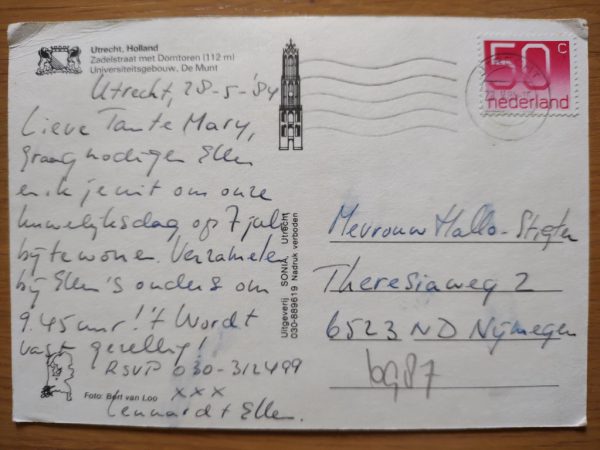 Utrecht, Holland
Zadelstraat met Domtoren (112 m)
Universiteitsgebouw, De Munt
Utrecht, 28-5-'84
Lieve Tante Mary,
graag nodigen Ellen
en ik je uit om onze
huwelijksdag op 7 juli
bij te wonen. Verzamelen
bij Ellen's ouders om
9.45 uur! 't Wordt
vast gezellig!
RSVP 030-312499
xxx
Lennardt + Ellen.
Foto: Bert van Loo
Uitgeverij SONIA, Utrecht
030-889619 Nadruk verboden
50 c
nederland
Mevrouw Mallo-
Theresiaweg 2
6523 ND Nijmegen
bg87